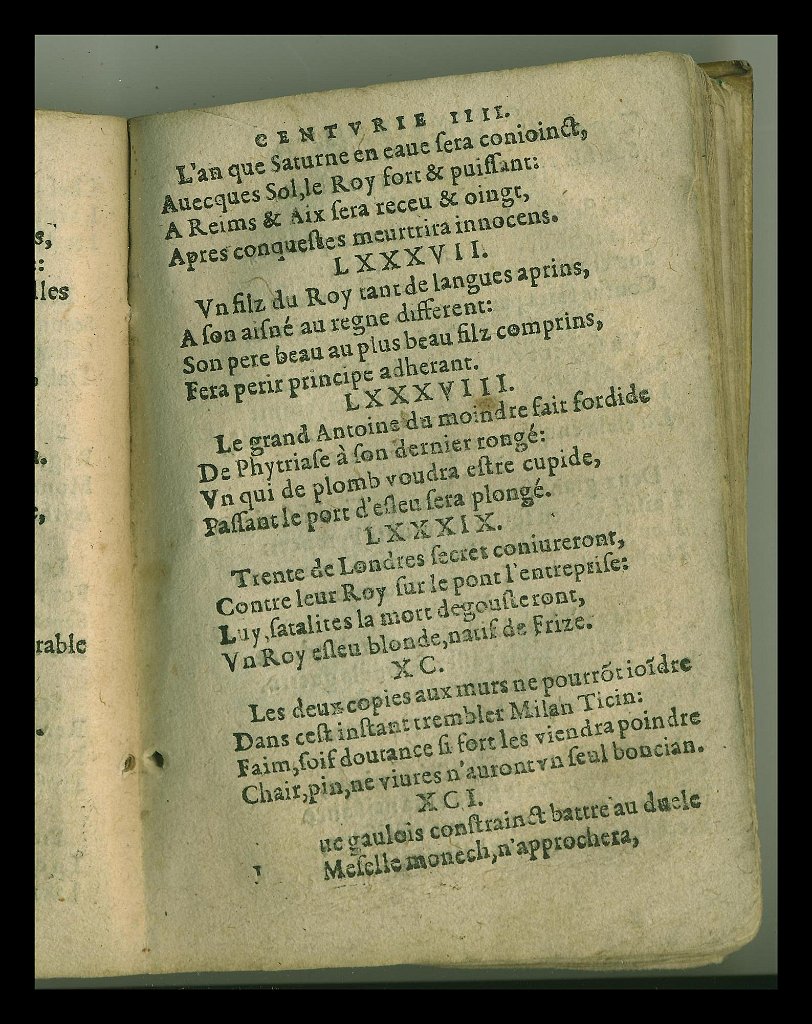 s,
:
lles
rable
CENTVRIE IIII.
L'an que Saturne en eaue ſera conioinct,
Auecques Sol, le Roy fort & puiſſant:
A Reims & Aix ſera receu & oingt,
Apres conqueſtes meurtrira innocens.
LXXXVII.
Vn filz du Roy tant de langues aprins,
A ſon aiſné au regne different:
Son pere beau au plus beau filz comprins,
Fera perir principe adherant.
LXXXVIII.
Le grand Antoine du moindre fait ſordide
De Phytriaſe à ſon dernier rongé:
Vn qui de plomb voudra eſtre cupide,
Paſſant le port d'eſleu ſera plongé.
LXXXIX.
Trente de Londres ſecret coniureront,
Contre leur Roy ſur le pont l'entrepriſe:
Luy, ſatalites la mort degouſteront,
Vn Roy eſleu blonde, natif de Frize.
XC.
Les deux copies aux murs ne pourrõt ioĩdre
Dans ceſt inſtant trembler Milan Ticin:
Faim, ſoif doutance ſi fort les viendra poindre
Chair, pin, ne viures n'auront vn ſeul boucian.
XCI.
ue gaulois conſtrainct battre au duele
Meſelle monech, n'approchera,